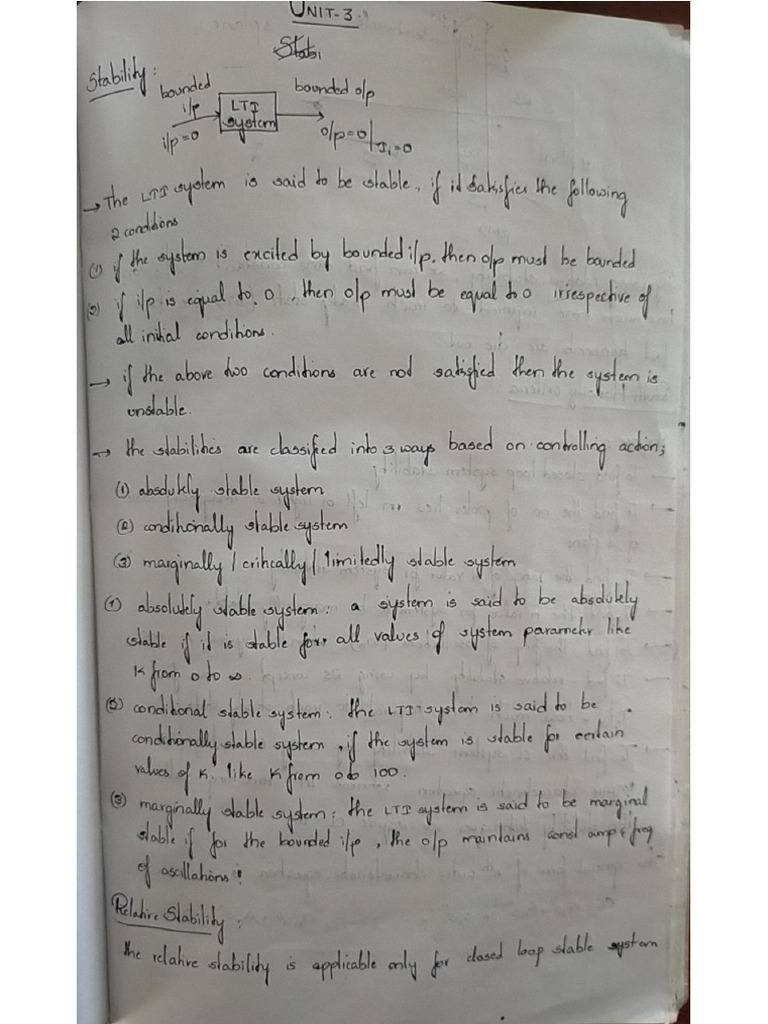 UNIT-3
Stabi
Stability:
bounded
i/p
i/p=0
LTI
system
bounded o/p
o/p=0/I.=0
→ The LTI system is said to be stable, if it satisfies the following
2 conditions
(1) if the system is excited by bounded i/p. then o/p must be bounded
(2) if i/p is equal to 0, then o/p must be equal to 0 irrespective of
all initial conditions.
→ if the above two conditions are not satisfied then the system is
unstable.
→ the stabilities are classified into 3 ways based on controlling action;
(1) absolutely stable system
(2) conditionally stable system
(3) marginally / critically / limitedly stable system
(1) absolutely stable system: a system is said to be absolutely
stable if it is stable for all values of system parameter like
K from 0 to ∞
(2) conditional stable system: the LTI system is said to be
conditionally stable system, if the system is stable for certain
values of K. like K from 0 to 100.
(3) marginally stable system: the LTI system is said to be marginal
stable if for the bounded i/p, the o/p maintains const amp & freq
of oscillations.
Relative Stability:
the relative stability is applicable only for closed loop stable system